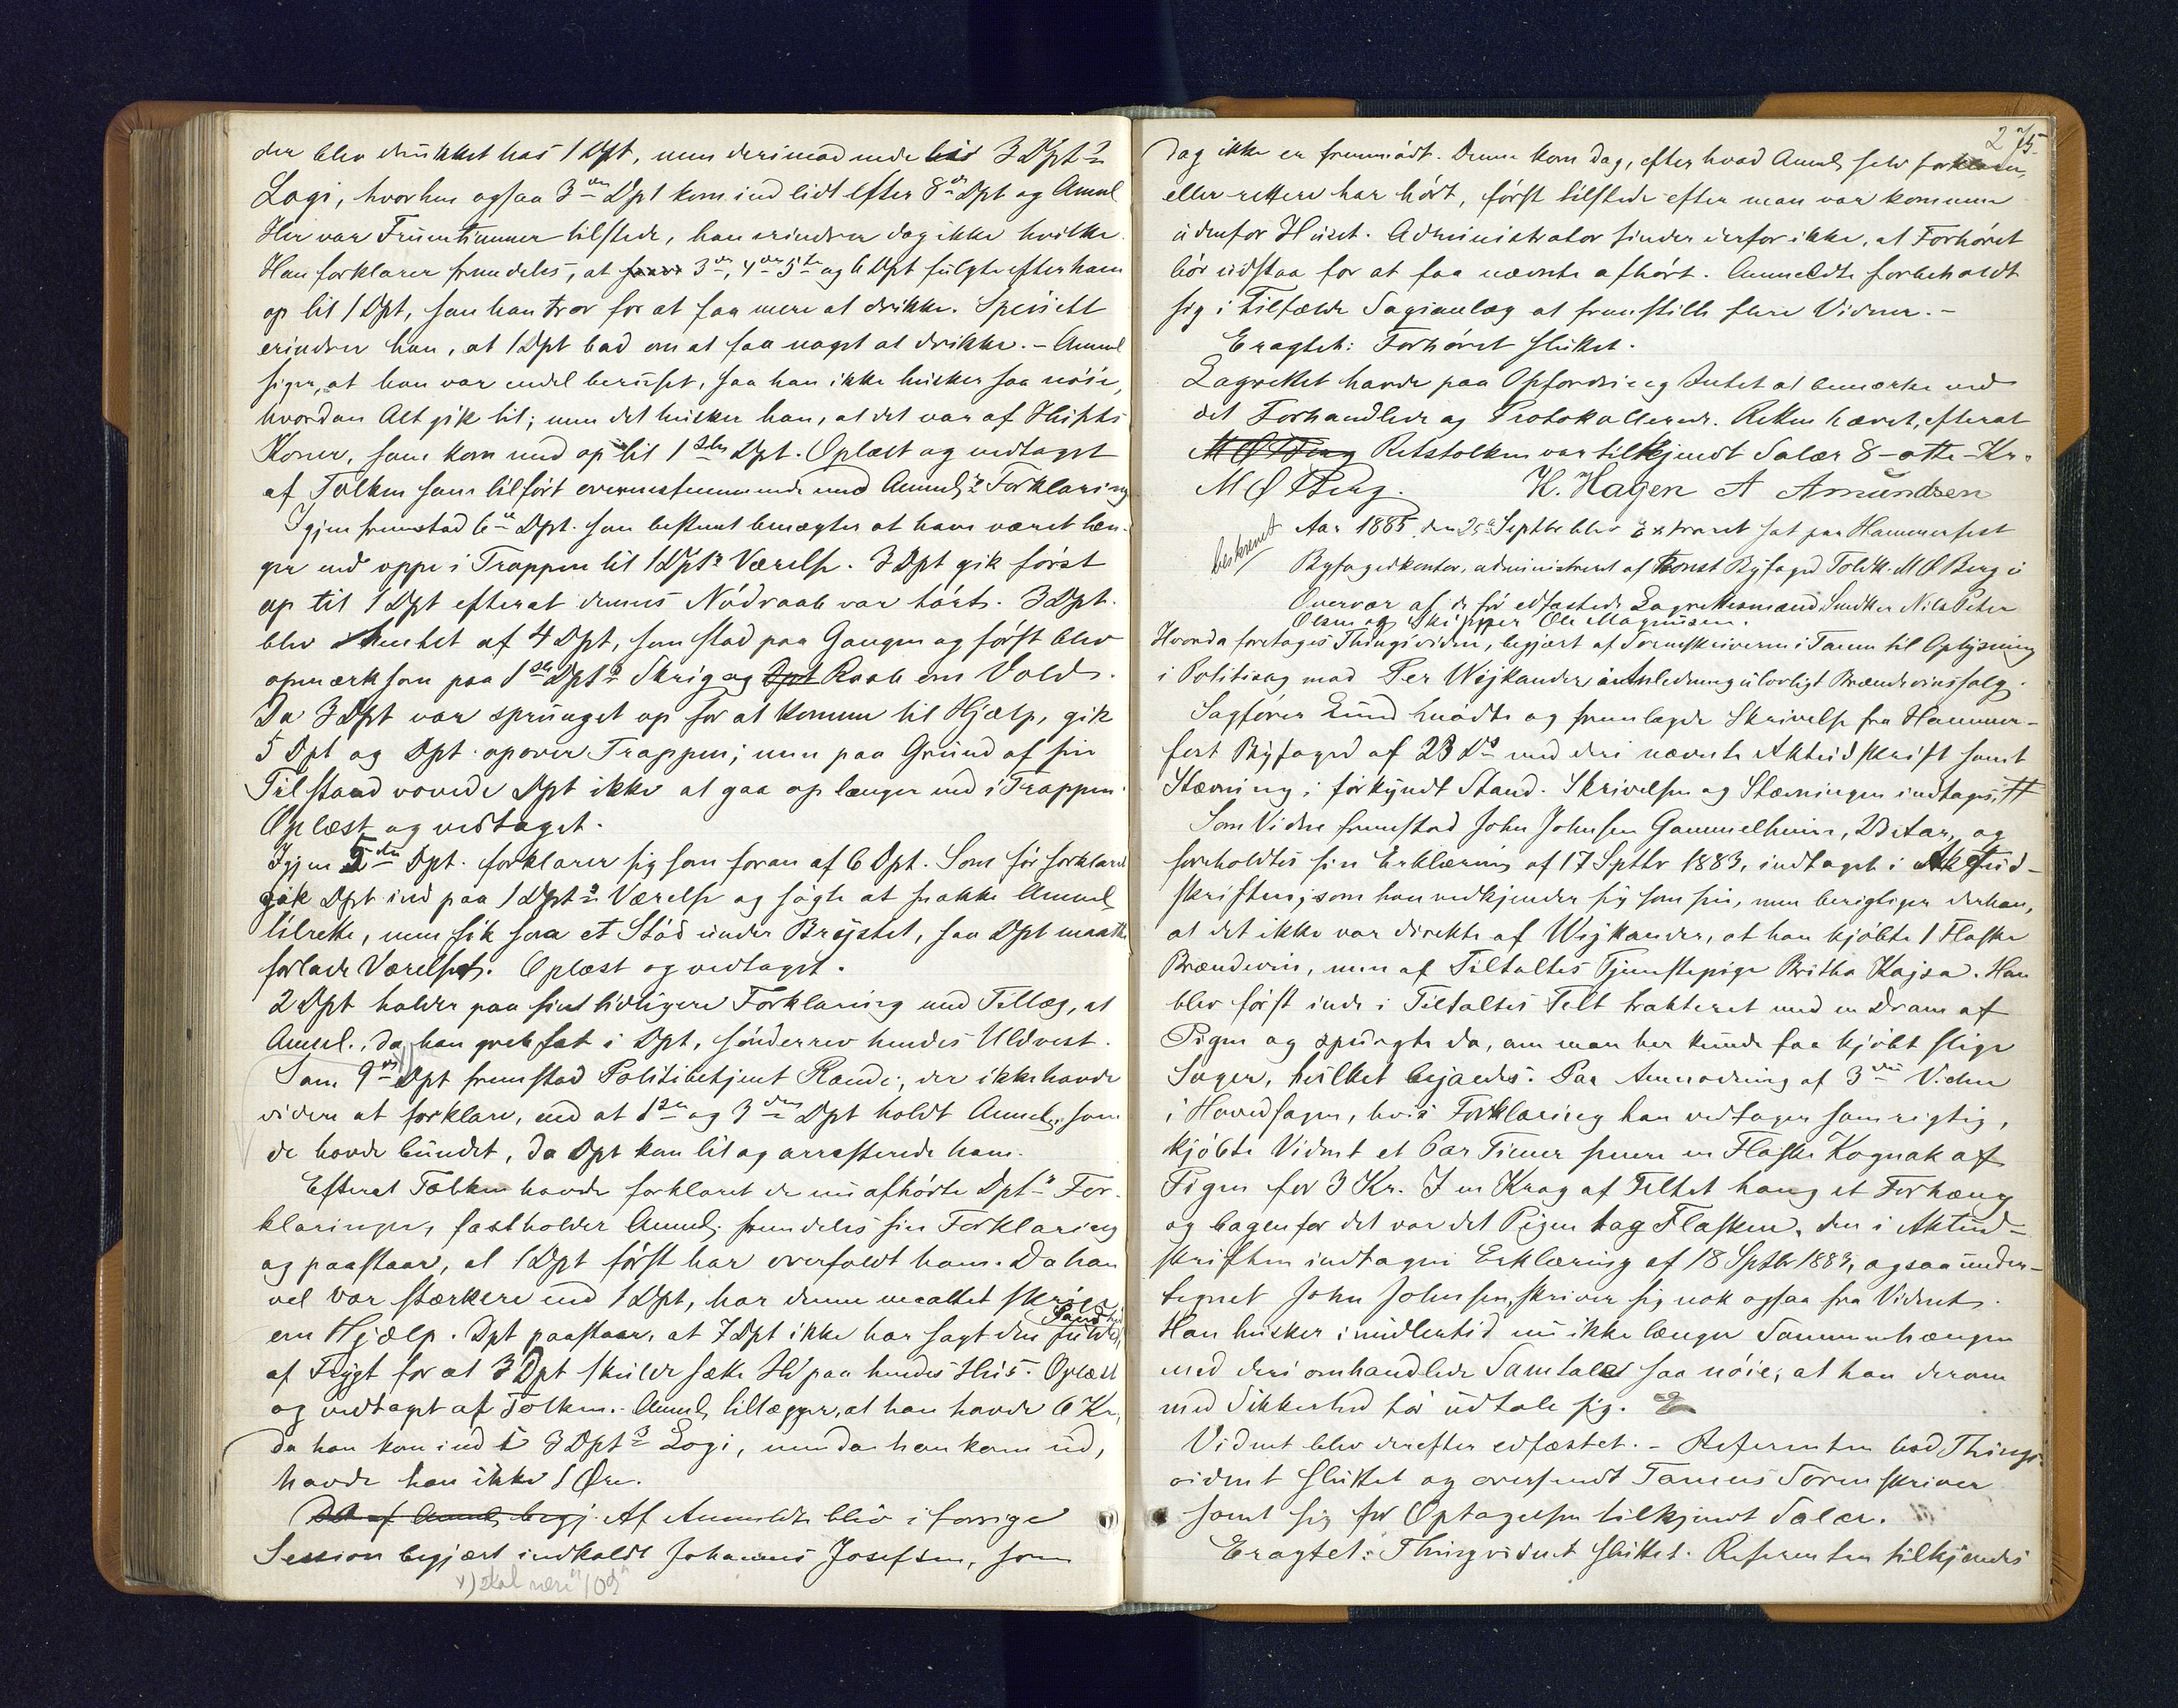 der blev drukket hos 1 Dpt, men derimod nede hos 3 Dpts
Logi, hvorhen ogsaa 3die Dpt kom ind lidt efter 8de Dpt og Anml
Her var Fruentimmer tilstede, han erindrer dog ikke hvilke.
Han forklarer fremdeles, at 3die, 4de 5te og 6 Dpt fulgte efter ham
op til 1 Dpt, som han tror for at faa mere at drikke. Specielt
erindrer han, at 1 Dpt bad om at faa noget at drikke. - Anml
siger, at han var endel beruset, saa han ikke husker saa nöie,
hvordan Alt gik til; men det husker han, at det var af Husets
Koner, som kom med op til 1ste Dpt. Oplæst og vedtaget
af Tolken som tilfört overensstemmende med Anmel.s Forklaring
Igjen fremstod 6te Dpt. som bestemt benægter at have været læn-
ger end oppe i Trappen til 1 Dpts Værelse. 3 Dpt gik först
op til 1 Dpt efterat dennes Nödraab var hört. 3 Dpt.
blev hentet af 4 Dpt, som stod paa Gangen og först blev
opmærksom paa 1ste Dpts Skrig og Dpt Raab om Vold.
Da 3 Dpt var sprunget op for at komme til Hjælp, gik
5 Dpt og Dpt opover Trappen; men paa Grund af sin
Tilstand vovede Dpt ikke at gaa op længer end i Trappen.
Oplæst og vedtaget.
Igjen 5te Dpt. forklarer sig som foran af 6 Dpt. Som för forklaret
gik Dpt ind paa 1 Dpts Værelse og sögte at snakke Anmel.
tilrette, men fik saa et Stöd under Brystet, saa Dpt maatte
forlade Værelset. Oplæst og vedtaget.
2 Dpt holder paa sin tidligere Forklaring med Tillæg, at
Anmel., da han greb fat i Dpt, sönderrev hendes Uldvest.
Som 9de x) Dpt fremstod Politibetjent Rande, der ikke havde
videre at forklare, end at 1ste og 3die Dpt holdt Anmel., som
de havde bundet, da Dpt kom til og arresterede ham.
Efterat Tolken havde forklaret de nu afhörte Dpts For-
klaringer, fastholder Anmel. fremdeles sin Forklaring
og paastaar, at 1 Dpt först har overfaldt ham. Da han
vel var stærkere end 1 Dpt, har denne maattet skrige
om Hjælp. Dpt paastaar, at 7 Dpt ikke har sagt den fulde Sandhed,
af Frygt for at 3 Dpt skulde sætte Ild paa hendes Hus. Oplæst
og vedtaget af Tolken. - Anmel. tillægger, at han havde 6 Kr,
da han kom ind i 3 Dpts Logi, men da han kom ud,
havde han ikke 1 Øre.
Det af Anml. begj. Af Anmeldte blev i forrige
Session begjært indkaldt Johannes Josefsen, som
x) skal være "10de"
275
dog ikke er fremmödt. Denne kom dog, efter hvad Anml. selv forklarer,
eller rettere har hört, först tilstede efter man var kommen
udenfor Huset. Administrator finder derfor ikke, at Forhöret
bör udstaa for at faa nævnte afhört. Anmeldte forbeholdt
sig i Tilfælde Sagsanlæg at fremstille flere Vidner. -
Eragtet: Forhöret sluttet.
Lagrettet havde paa Opfordring Intet at bemærke ved
det Forhandlede og Protokollerede. Retten hævet, efterat
M Ø Berg Retstolken var tilkjendt Salær 8 - otte - Kr.
M Ø Berg. H. Hagen A Amundsen
beskrevet
Aar 1885 den 25de Septbr blev Extraret sat paa Hammerfest
Byfogedkontor, administreret af Konst Byfoged Toldk. M Ø Berg i
Overvær af de för edfæstede Lagrettesmænd Snedker Nils Peter
Olsen og Skipper Ole Magnussen.
Hvorda foretoges Thingsvidne, begjært af Sorenskriveren i Tanen til Oplysning
i Politisag mod Per Wejkander i Anledning ulovligt Brændevinssalg.
Sagförer Lund mödte og fremlagde Skrivelse fra Hammer-
fest Byfoged af 23 ds med deri nævnte Aktudskrift samt
Stævning i forkyndt Stand. Skrivelsen og Stævningen indtages, ++
Som Vidne fremstod John Johnsen Gammelheim, 23 Aar, og
foreholdtes sin Erklæring af 17 Septbr 1883, indtaget i Aktud-
skriften, som han vedkjender sig som sin, men berigtiger derhen,
at det ikke var direkte af Wejkander, at han kjöbte 1 Flaske
Brændevin, men af Tiltaltes Tjenestepige Britha Kajsa. Han
blev först inde i Tiltaltes Telt trakteret med en Dram af
Pigen og spurgte da, om man her kunde faa kjöbt slige
Sager, hvilket bejaedes. Paa Anmodning af 3die Vidne
i Hovedsagen, hvis Forklaring han vedtager som rigtig,
kjöbte Vidnet et Par Timer senere en Flaske Kognak af
Pigen for 3 Kr. I en Krog af Teltet hang et Forhæng
og bagenfor det var det Pigen tog Flasken. Den i Aktud-
skriften indtagne Erklæring af 18 Sptbr 1883, ogsaa under-
tegnet John Johnsen, skriver sig nok ogsaa fra Vidnet.
Han husker imidlertid nu ikke længer Sammenhængen
med den omhandlede Samtale saa nöie, at han derom
med Sikkerhed tör udtale sig.
Vidnet blev derefter edfæstet. - Referenten bad Things-
vidnet sluttet og oversendt Tanens Sorenskriver
samt sig for Optagelsen tilkjendt Salær.
Eragtet: Thingsvidnet sluttet. Referenten tilkjendes